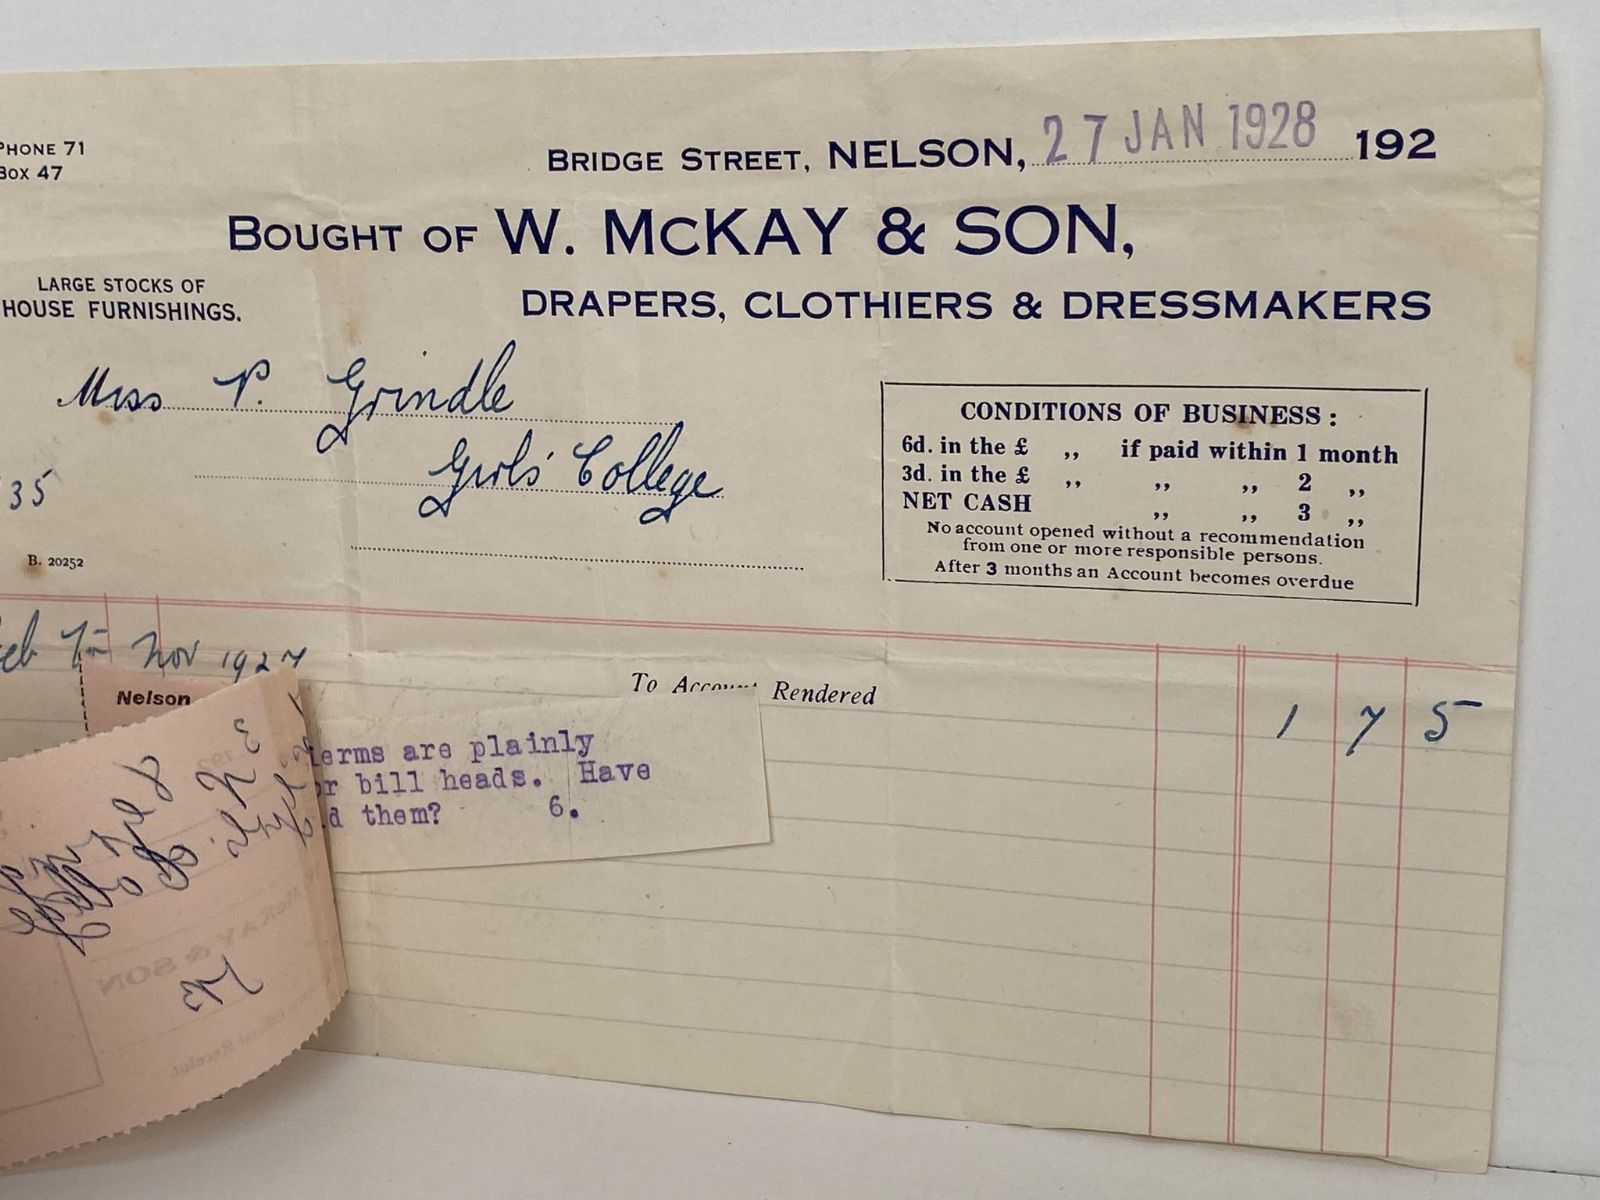 PHONE 71
BOX 47
BRIDGE STREET, NELSON, 27 JAN 1928 192
BOUGHT OF W. MCKAY & SON,
LARGE STOCKS OF
HOUSE FURNISHINGS.
DRAPERS, CLOTHIERS & DRESSMAKERS
Miss P. Grindle
Girls' College
35
B. 20252
CONDITIONS OF BUSINESS:
6d. in the £ ,, if paid within 1 month
3d. in the £ ,, ,, ,, 2 ,,
NET CASH ,, ,, 3 ,,
No account opened without a recommendation
from one or more responsible persons.
After 3 months an Account becomes overdue
Nov 1927
Nelson
To Account Rendered 1 7 5
terms are plainly
or bill heads. Have
d them? 6.
McKAY & SON
Receipt.